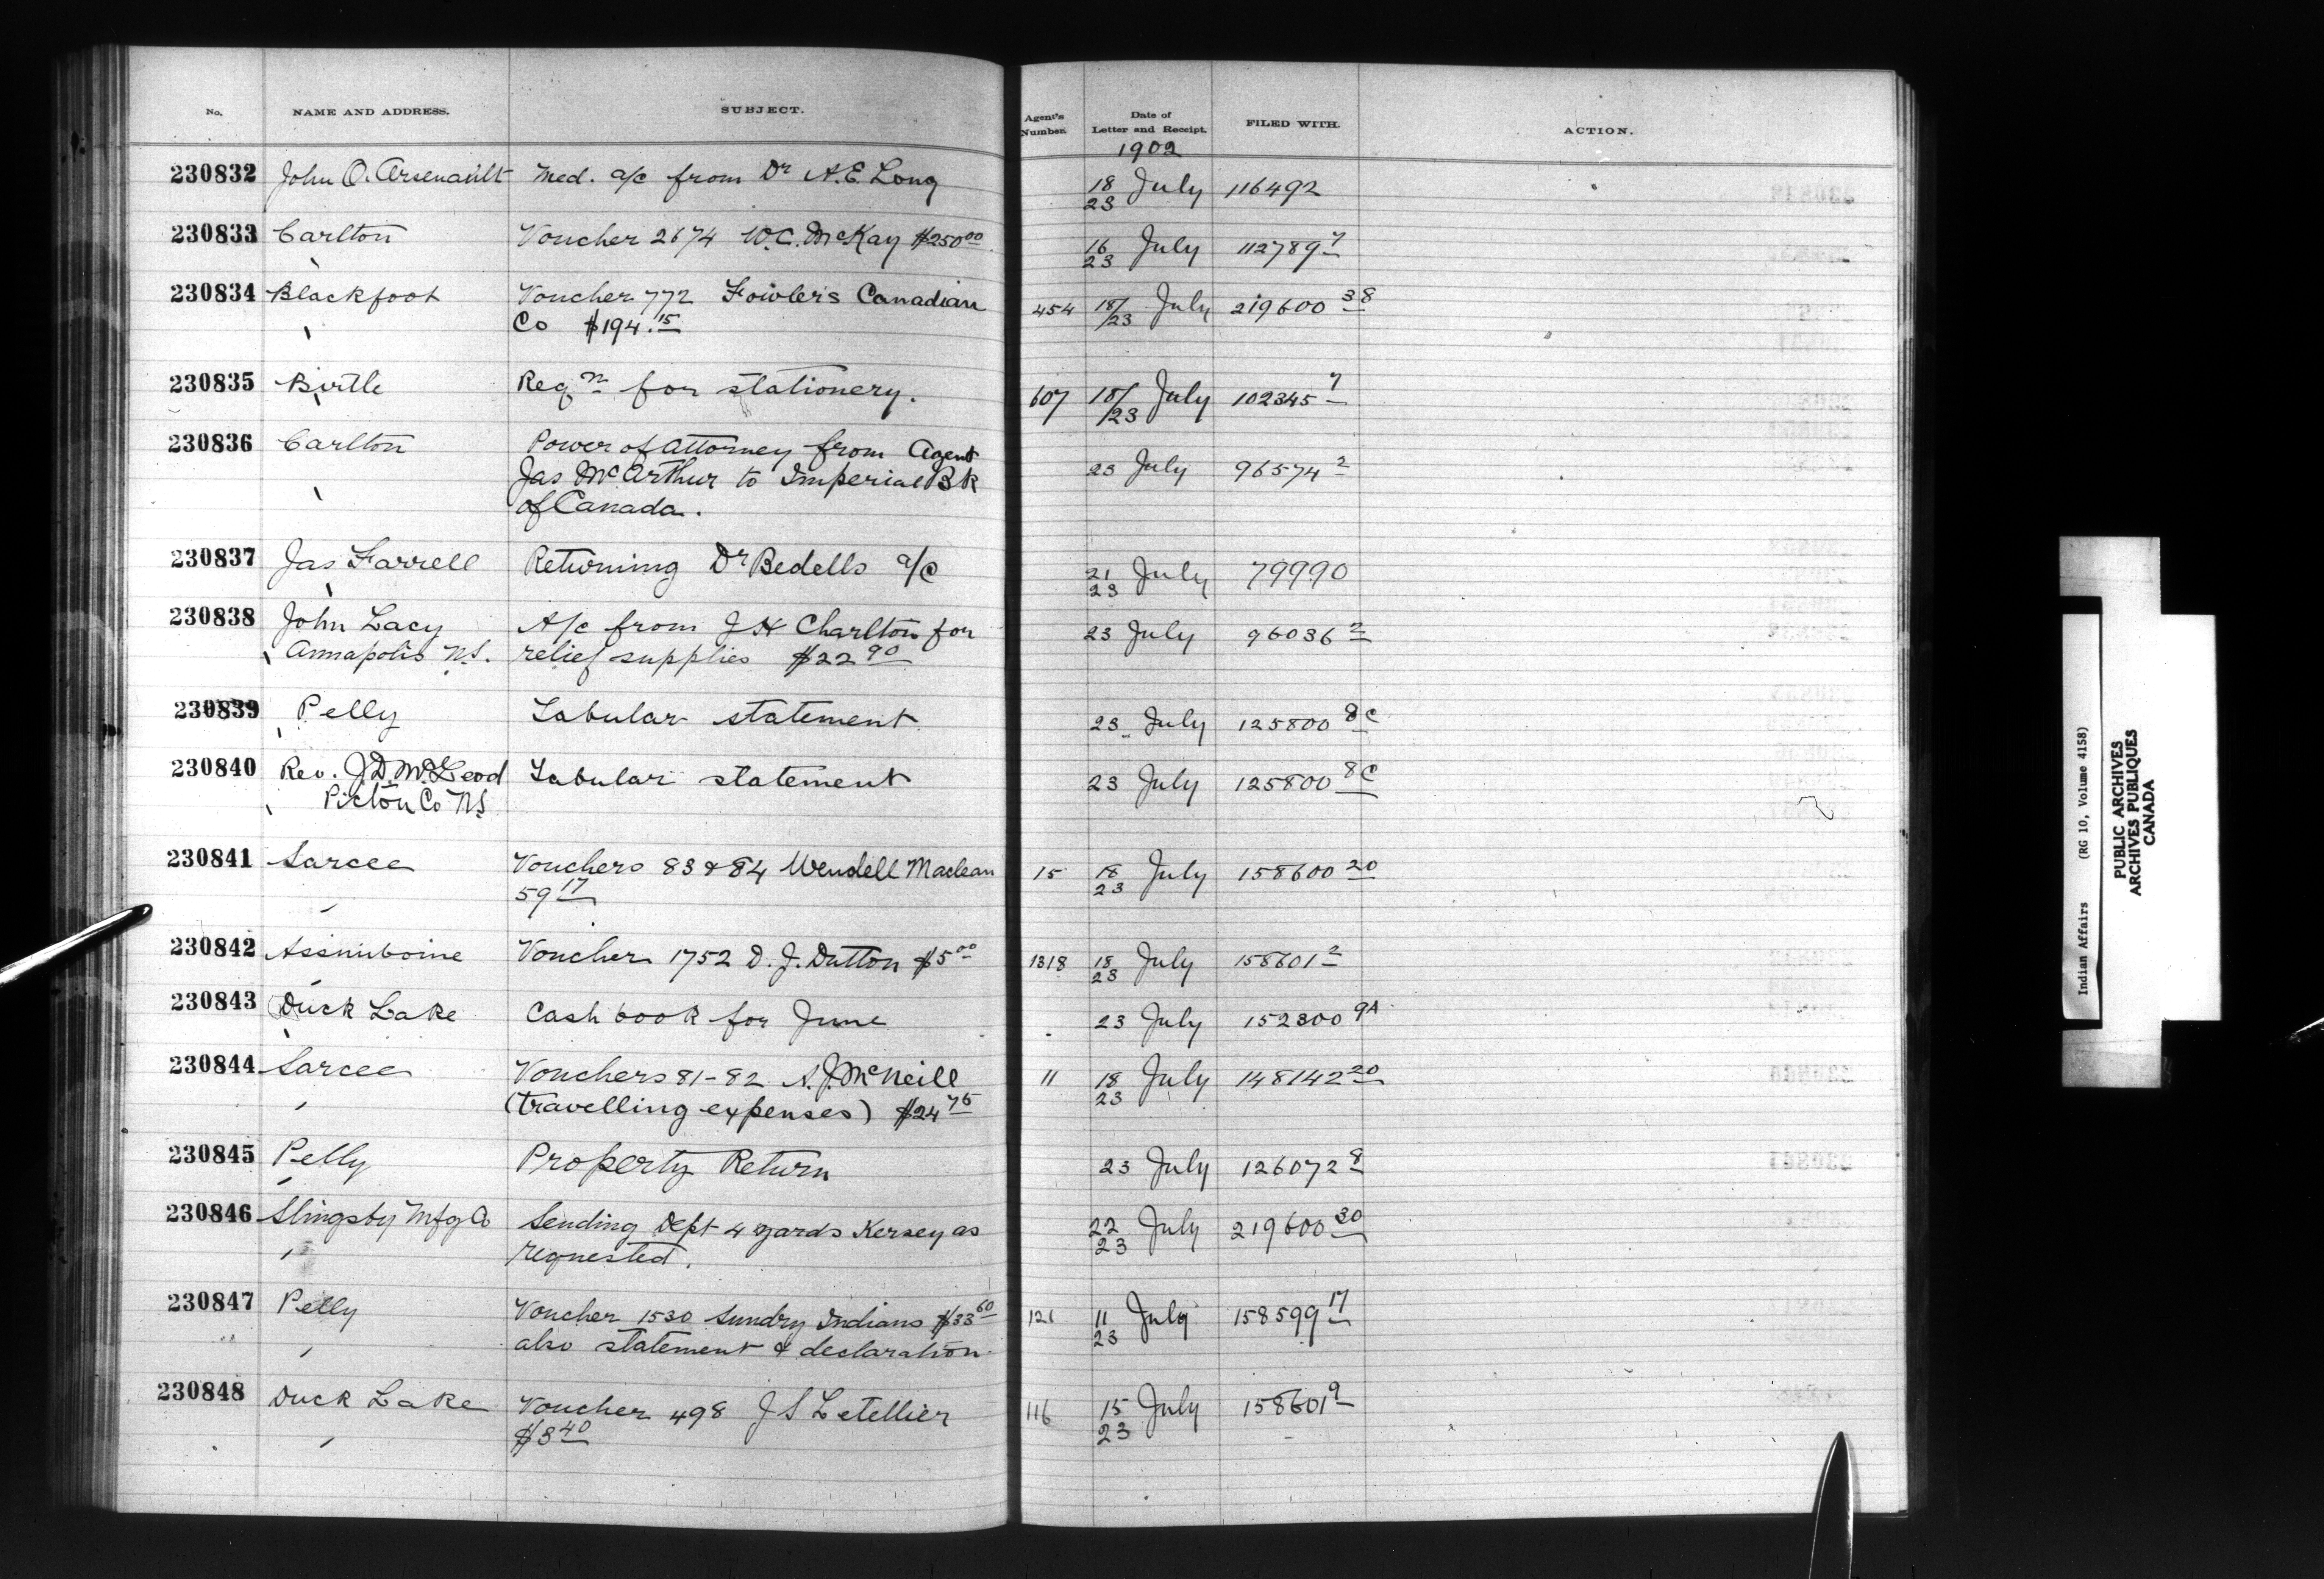 No. NAME AND ADDRESS. SUBJECT. Agent's Number. Date of Letter and Receipt. FILED WITH. ACTION.
1902
230832 John O. Arsenault Med. a/c from Dr A.E. Long 18/23 July 116492
230833 Carlton Voucher 2674 W.C. McKay $250.00 16/23 July 112789-7
230834 Blackfoot Voucher 772 Fowler's Canadian 454 18/23 July 219600-38
Co $194.15
230835 Birtle Reqn for stationery. 607 18/23 July 102345-7
230836 Carlton Power of Attorney from Agent 23 July 96574-2
Jas McArthur to Imperial Bk
of Canada.
230837 Jas Farrell Returning Dr Bedells a/c 21/23 July 79990
230838 John Lacy A/c from J H Charlton for 23 July 96036-2
Annapolis N.S. relief supplies $22.90
230839 Pelly Tabular statement 23 July 125800-8C
230840 Rev. J.D. McLeod Tabular statement 23 July 125800-8C
Pictou Co N.S
230841 Sarcee Vouchers 83 & 84 Wendell Maclean 15 18/23 July 158600-20
59.17
230842 Assiniboine Voucher 1752 D. J. Dutton $5.00 1318 18/23 July 158601-2
230843 Duck Lake Cash book for June 23 July 152300-9A
230844 Sarcee Vouchers 81-82 A.J. McNeill 11 18/23 July 148142-20
(travelling expenses) $24.75
230845 Pelly Property Return 23 July 126072-8
230846 Slingsby Mfg Co Sending Dept 4 yards Kersey as 22/23 July 219600-30
requested.
230847 Pelly Voucher 1530 Sundry Indians $33.60 121 11/23 July 158599-17
also statement & declaration
230848 Duck Lake Voucher 498 J S Letellier 116 15/23 July 158601-9
$3.40
Indian Affairs (RG 10, Volume 4158)
PUBLIC ARCHIVES
ARCHIVES PUBLIQUES
CANADA